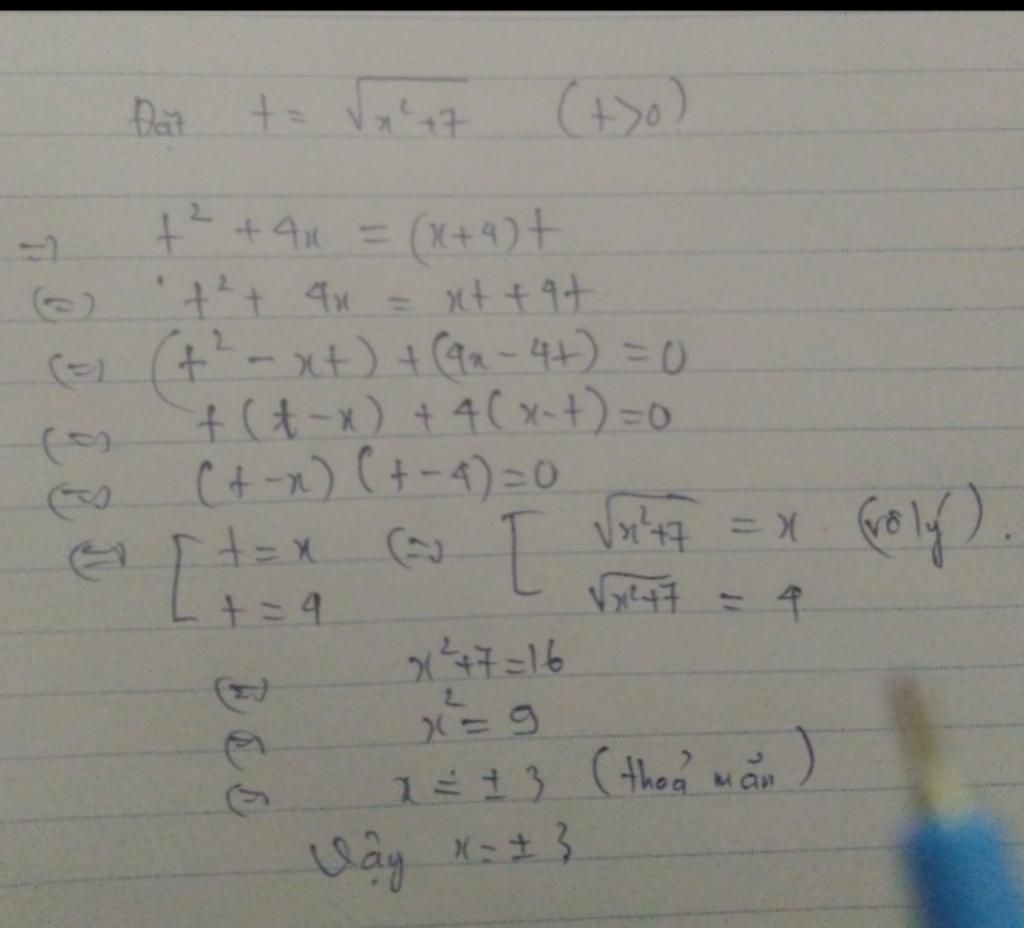 Đặt t = √(x²+7) (t>0)
=> t² + 4x = (x+4)t
(=) t² + 4x = xt + 4t
(=) (t² - xt) + (4x - 4t) = 0
(=) t(t-x) + 4(x-t) = 0
(=) (t-x)(t-4) = 0
(=) [ t = x (=) [ √(x²+7) = x (vô lý).
t = 4 √(x²+7) = 4
(=) x²+7 = 16
(=) x² = 9
(=) x = ± 3 (thoả mãn)
Vậy x = ± 3